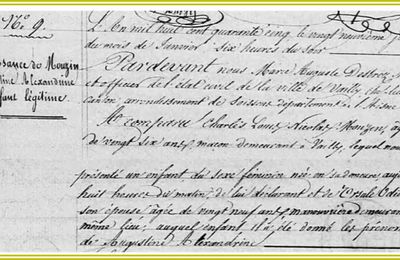 N.º 9.
ssance de Mouzin
tine Alexandrine
fant légitime
L'An mil huit cent quarante cinq le vingt neuvième
du mois de Janvier six heures du soir
Pardevant nous Marc Auguste
et officier de l'état civil de la ville de Vailly chef lieu
canton arrondissement de Soissons département de l'Aisne
A comparu Charles Louis Nicolas Mouzin, âg
de vingt six ans, maçon demeurant à Vailly, lequel nous
présenté un enfant du sexe féminin née en sa demeure, aujou
huit heures du matin, de lui déclarant et de Ursule
son épouse âgée de vingt neuf ans manouvrière demeurant
même lieu, auquel enfant il a été donné les prénoms
de Augustine Alexandrine